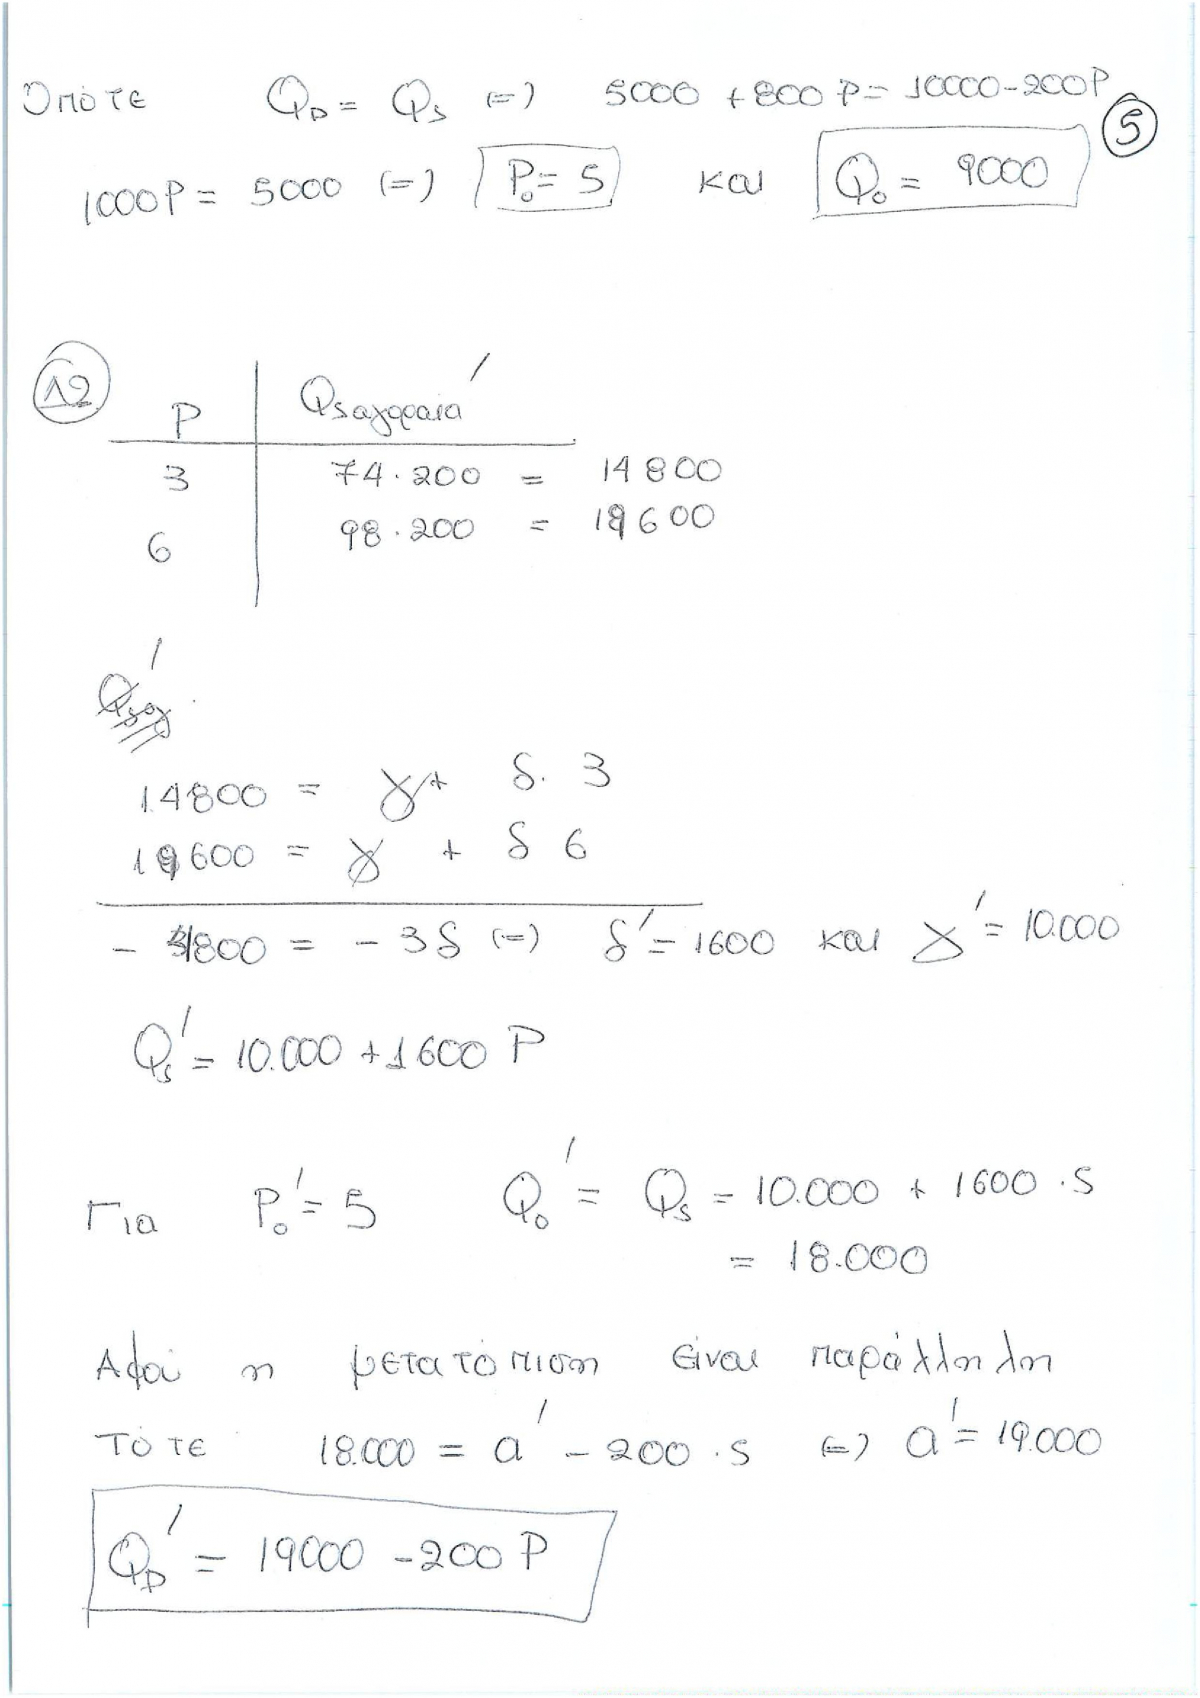 Οπότε Q_D = Q_S (=) 5000 + 800 P = 10000 - 200P
5
1000P = 5000 (=) P₀ = 5 και Q₀ = 9000
Δ2
P Q_S αγοραία'
3 74 · 200 = 14800
6 98 · 200 = 19600
14800 = γ + δ · 3
19600 = γ + δ 6
- 4800 = - 3δ (=) δ' = 1600 και γ' = 10.000
Q_S' = 10.000 + 1600 P
Για P₀' = 5 Q₀' = Q_S = 10.000 + 1600 · 5
= 18.000
Αφού η μετατόπιση είναι παράλληλη
τότε 18.000 = α' - 200 · 5 (=) α' = 19.000
Q_D' = 19000 - 200 P